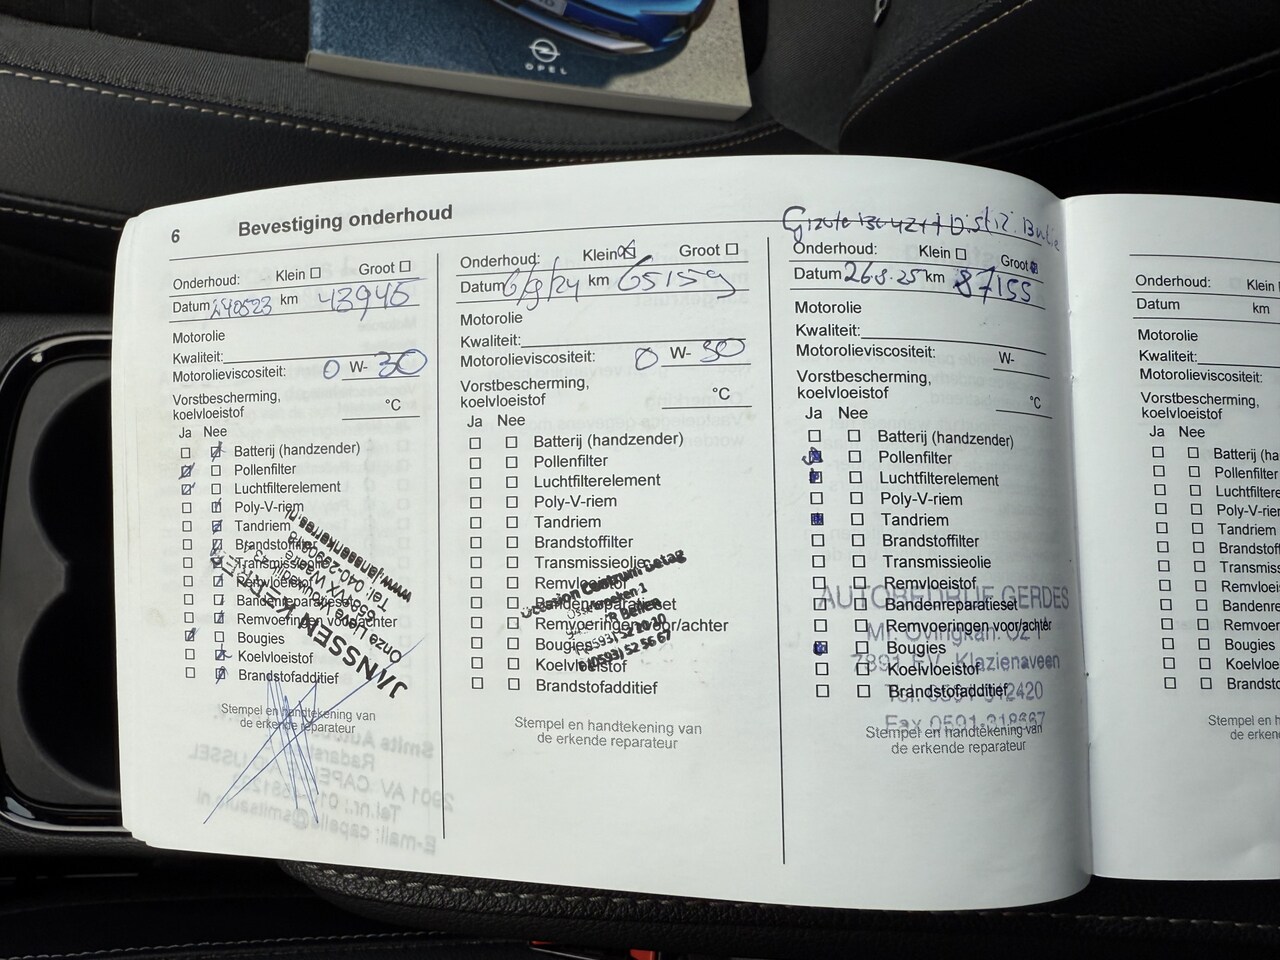 OPEL
6 Bevestiging onderhoud
Onderhoud: Klein Groot
Datum 240523 km 43946
Motorolie
Kwaliteit:
Motorolieviscositeit: 0 W- 30
Vorstbescherming,
koelvloeistof °C
Ja Nee
Batterij (handzender)
Pollenfilter
Luchtfilterelement
Poly-V-riem
Tandriem
Brandstoffilter
Transmissieolie
Remvloeistof
Bandenreparatieset
Remvoeringen voor/achter
Bougies
Koelvloeistof
Brandstofadditief
JANSSEN KERRES
Onze Lieve Vrouwedijk 43
Tel. 040-2290676
www.janssenkerres.nl
Stempel en handtekening van
de erkende reparateur
Onderhoud: Klein Groot
Datum 6/9/24 km 65159
Motorolie
Kwaliteit:
Motorolieviscositeit: 0 W- 30
Vorstbescherming,
koelvloeistof °C
Ja Nee
Batterij (handzender)
Pollenfilter
Luchtfilterelement
Poly-V-riem
Tandriem
Brandstoffilter
Transmissieolie
Remvloeistof
Bandenreparatieset
Remvoeringen voor/achter
Bougies
Koelvloeistof
Brandstofadditief
Occasion Centrum Getag
Beilen
(0593) 52 56 67
Stempel en handtekening van
de erkende reparateur
Onderhoud: Klein Groot
Datum 26.8.25 km 87155
Motorolie
Kwaliteit:
Motorolieviscositeit: W-
Vorstbescherming,
koelvloeistof °C
Ja Nee
Batterij (handzender)
Pollenfilter
Luchtfilterelement
Poly-V-riem
Tandriem
Brandstoffilter
Transmissieolie
Remvloeistof
Bandenreparatieset
Remvoeringen voor/achter
Bougies
Koelvloeistof
Brandstofadditief
AUTOBEDRIJF GERDES
7891 EV Klazienaveen
Tel. 0591-312420
Fax 0591-318667
Stempel en handtekening van
de erkende reparateur
Onderhoud: Klein
Datum km
Motorolie
Kwaliteit:
Motorolieviscositeit:
Vorstbescherming,
koelvloeistof
Ja Nee
Batterij (ha
Pollenfilter
Luchtfilterele
Poly-V-rie
Tandriem
Brandstof
Transmiss
Remvloeis
Bandenre
Remvoer
Bougies
Koelvloe
Brandst
Stempel en h
de erken